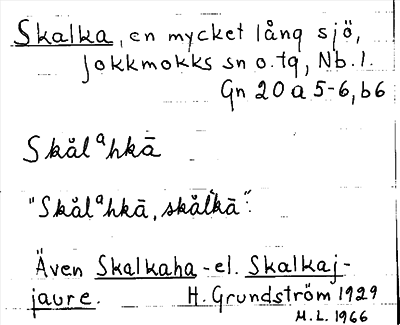 Skalka, en mycket lång sjö,
Jokkmokks sn o. tg, Nb. l.
Gn 20 a 5-6, b6
Skålᵃhkā
"Skålᵃhkā, skålˈkā".
Även Skalkaha- el. Skalkaj-
jaure. H. Grundström 1929
M.L. 1966